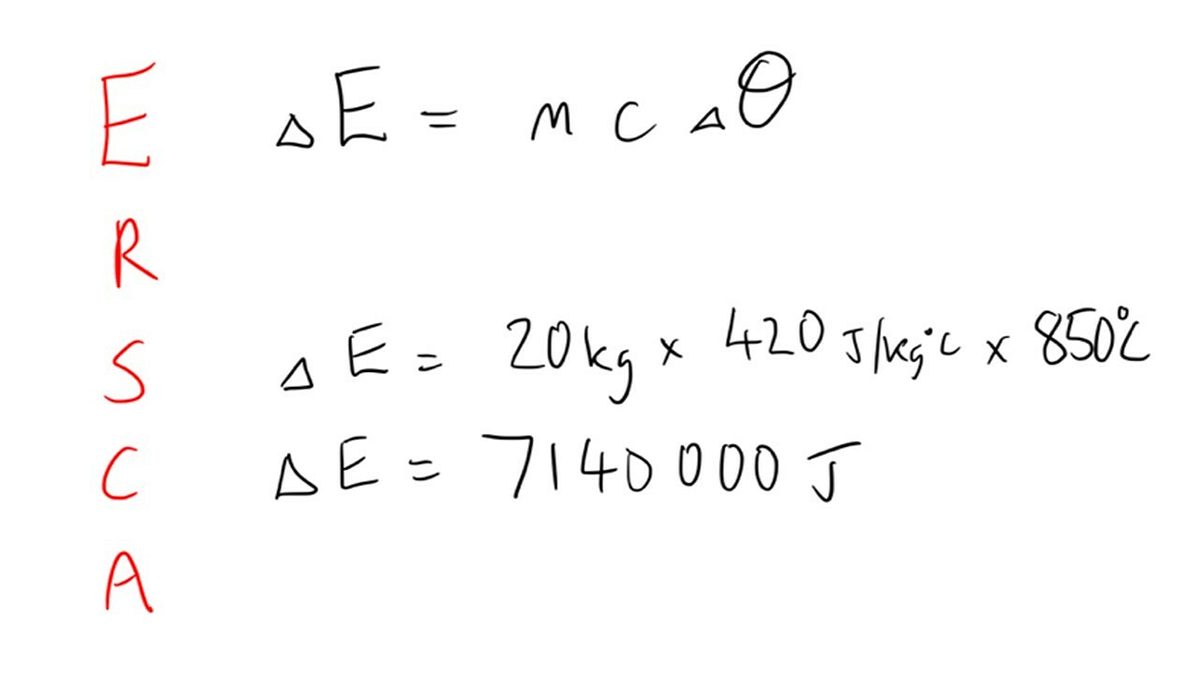 E ΔE = m c Δθ
R
S ΔE = 20kg × 420 J/kg°C × 850°C
C ΔE = 7140 000 J
A